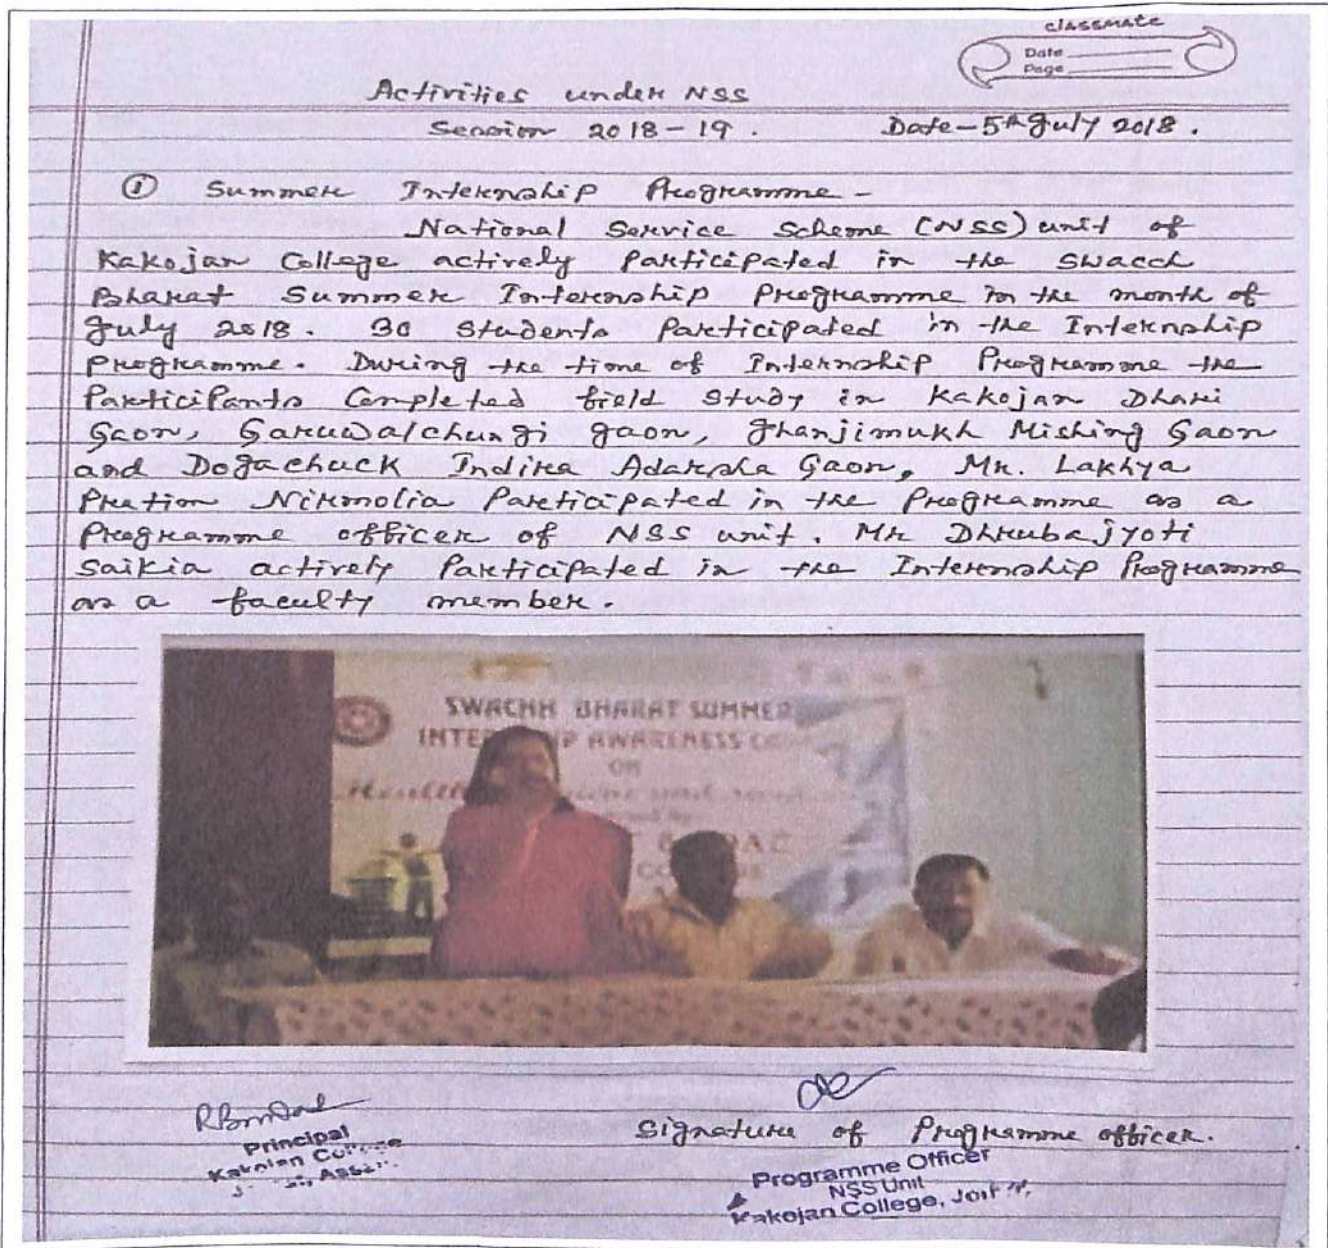 classmate
Date
Page
Activities under NSS
Session 2018-19. Date-5th July 2018.
① Summer Internship Programme-
National Service Scheme (NSS) unit of
Kakojan College actively participated in the Swacch
Bharat Summer Internship Programme in the month of
July 2018. 30 Students Participated in the Internship
Programme. During the time of Internship Programme the
Participants Completed field Study in Kakojan Dhari
Gaon, Garuwalchungi gaon, Jhanjimukh Mishing Gaon
and Dogachuck Indira Adarsha Gaon, Mr. Lakhya
Pration Nirmolia Participated in the Programme as a
Programme officer of NSS unit. Mr Dhrubajyoti
Saikia actively Participated in the Internship Programme
as a faculty member.
SWACHH BHARAT SUMMER
AWARENESS
ON
Principal
Kakojan
Signature of Programme officer.
Programme Officer
NSS Unit
Kakojan College,